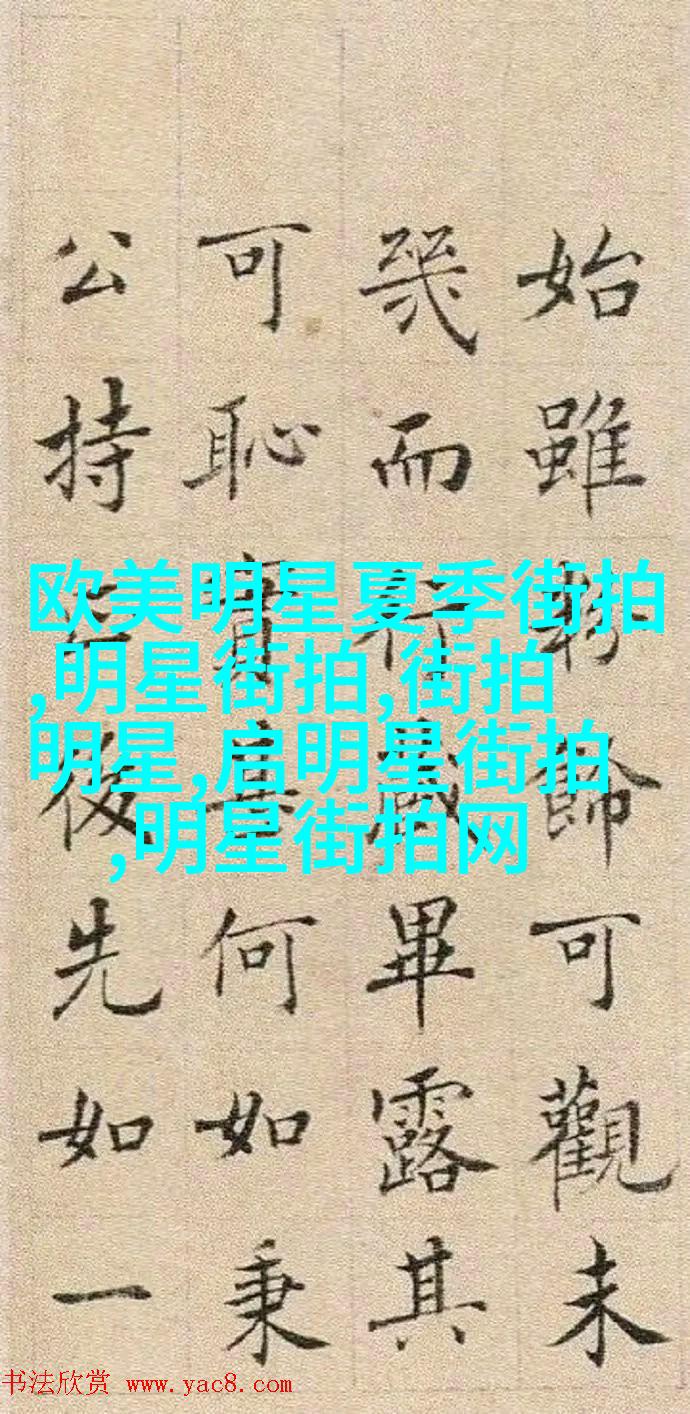 始雖粉飾可觀未
幾而行藏畢露其
可恥實甚何如秉
公持後先如一
欧美明星夏季街拍
,明星街拍,街拍
明星,启明星街拍
,明星街拍网
书法欣赏 www.yac8.com